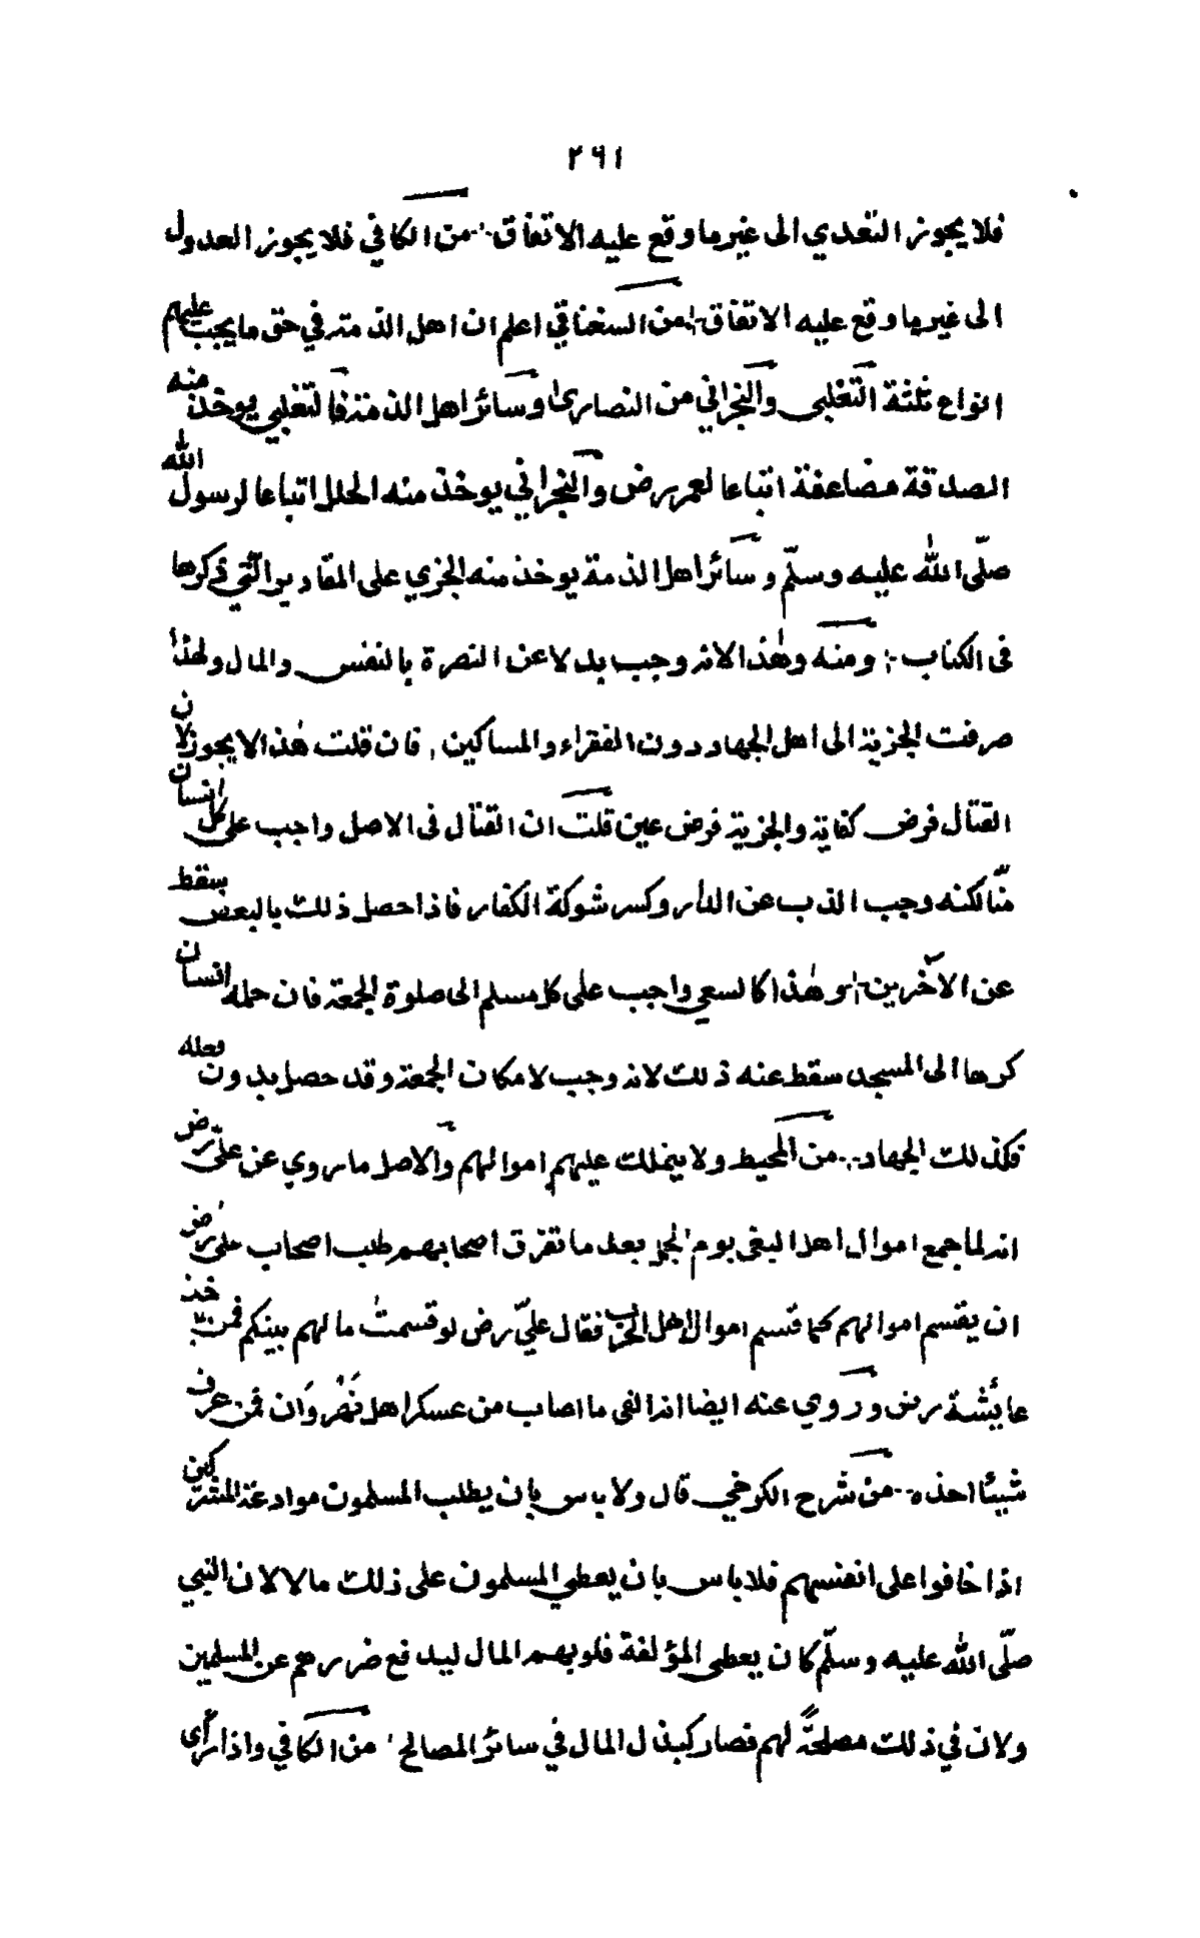 ٢٦١
فلا يجوز التعدي الى غير ما وقع عليه الاتفاق ∴ من الكافي فلا يجوز العدول
الى غير ما وقع عليه الاتفاق ∴ من السغناقي اعلم ان اهل الذمة في حق ما يجب عليهم
انواع ثلثة التغلبي والنجراني من النصارىٰ وسائر اهل الذمة فالتغلبي يوخذ منه
الصدقة مضاعفة اتباعا لعمر رض والنجراني يوخذ منه الحلل اتباعا لرسول الله
صلّى الله عليه وسلّم وسائر اهل الذمة يوخذ منه الجزي على المقادير الّتي ذكرها
فى الكتاب ∴ ومنه وهٰذا لانه وجب بدلا عن النصرة بالنفس والمال ولهذا
صرفت الجزية الى اهل الجهاد دون الفقراء والمساكين، فان قلت هٰذا لا يجوز لان
القتال فرض كفاية والجزية فرض عين قلت ان القتال فى الاصل واجب على كل انسان
منّا لكنه وجب الذب عن الدار وكسر شوكة الكفار فاذا حصل ذلك بالبعض سقط
عن الآخرين ∴ وهٰذا كالسعي واجب على كل مسلم الى صلوة الجمعة فان حمله انسان
كرها الى المسجد سقط عنه ذلك لانه وجب لامكان الجمعة وقد حصل بدون فعله
فكذلك الجهاد ∴ من المحيط ولا يتملك عليهم اموالهم والاصل ما روي عن عليّ رض
انه لما جمع اموال اهل البغى يوم الجمل بعد ما تفرق اصحابهم طلب اصحاب على رض
ان يقسم اموالهم كما قسم اموال اهل الحرب فقال عليّ رض لو قسمت مالهم بينكم فمن ياخذ
عايشة رض وروي عنه ايضا انه القى ما اصاب من عسكر اهل نَهْرَوَان فمن عرف
شيئا اخذه ∴ من شرح الكرخي قال ولا باس بان يطلب المسلمون موادعة المشركين
اذا خافوا على انفسهم فلا باس بان يعطي المسلمون على ذلك مالا لان النبي
صلّى الله عليه وسلّم كان يعطى المؤلفة قلوبهم المال ليدفع ضررهم عن المسلمين
ولان في ذلك مصلحةً لهم فصار كبذل المال في سائر المصالح ' من الكافي واذا رأى